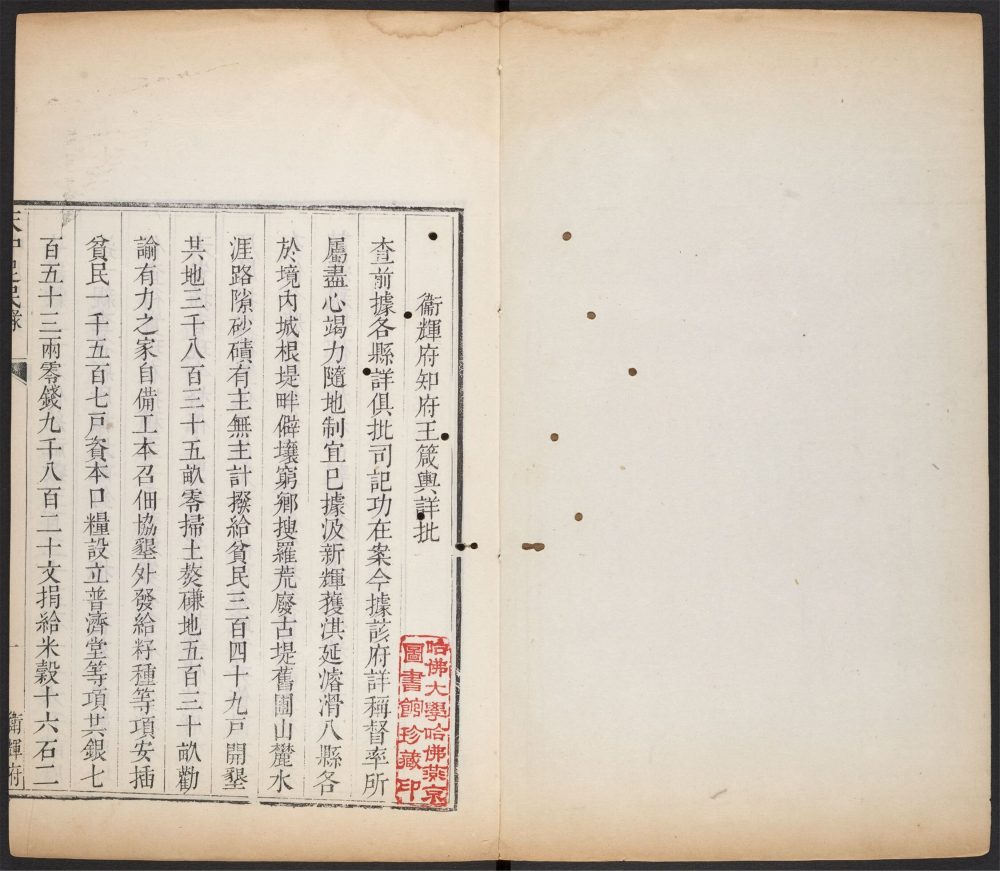 衞輝府知府王箴輿詳批
查前據各縣詳俱批司記功在案今據該府詳稱督率所
屬盡心竭力隨地制宜巳據汲新輝獲淇延濬滑八縣各
於境內城根堤畔僻壤窮鄉搜羅荒廢古堤舊圃山麓水
涯路隙砂磧有主無主計撥給貧民三百四十九戸開墾
共地三千八百三十五畝零掃土熬磏地五百三十畝勸
諭有力之家自備工本召佃協墾外發給籽種等項安插
貧民一千五百七戸資本口糧設立普濟堂等項共銀七
百五十三兩零錢九千八百二十文捐給米穀十六石二
一 衞輝府
哈佛大學哈佛燕京
圖書館珍藏印